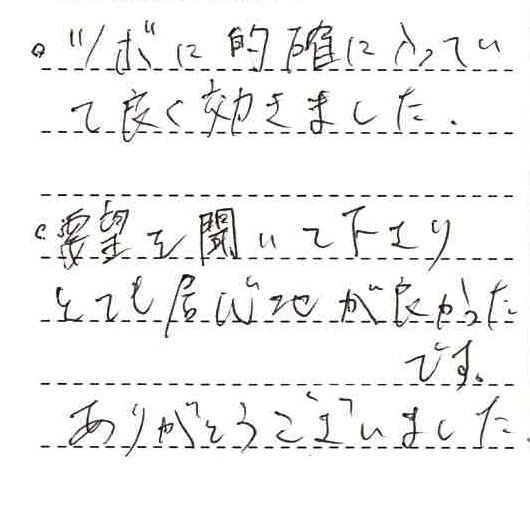 。ツボに的確に入ってい
て良く効きました.
。要望を聞いて下さり
とても居心地が良かった
です。
ありがとうございました